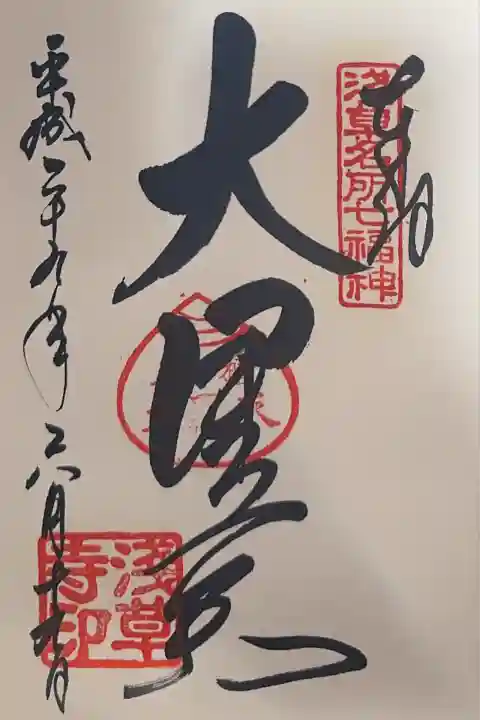 奉拝
浅草名所七福神
大黒天
浅草
寺印
平成二十九年八月十九日